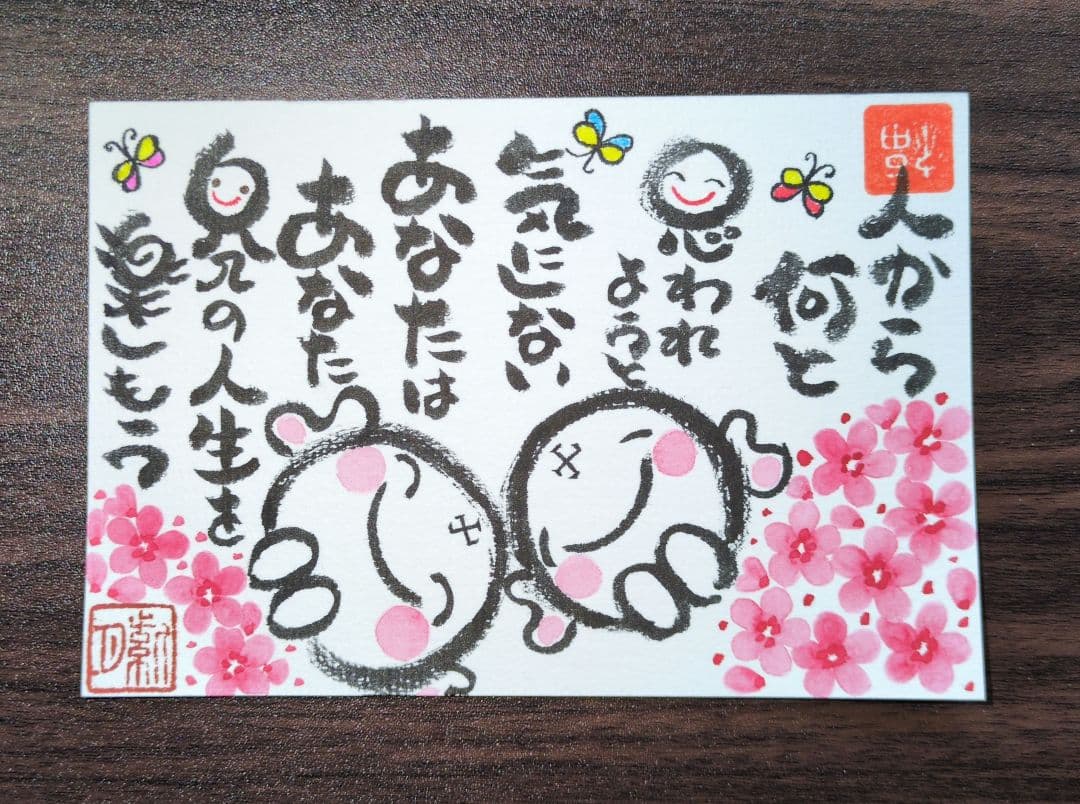 人から
何と
思われ
ようと
気にしない
あなたは
あなた
自分の人生を
楽しもう